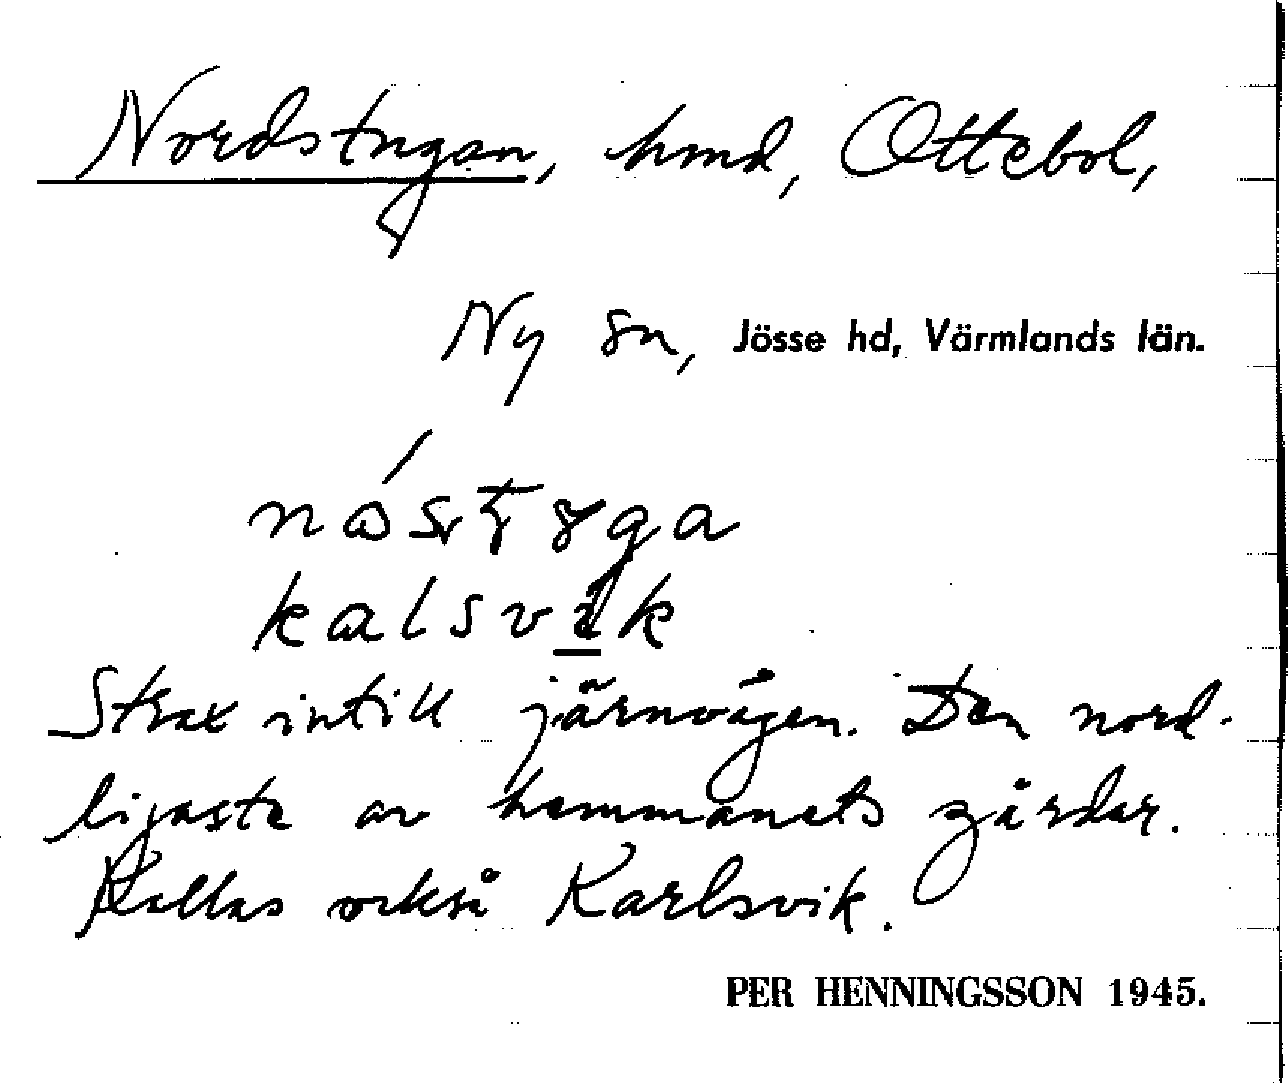 Nordstugan, hmd, Ottebol,
Ny sn, Jösse hd, Värmlands län.
kalsvik
Strax intill järnvägen. Den nord-
ligaste av hemmanets gårdar.
Kallas också Karlsvik.
PER HENNINGSSON 1945.